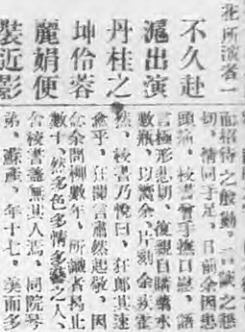 所演者一
不久赴
滬出演
丹桂之
坤伶蓉
麗娟便
裝近影
而招待之殷勤。
切、情同手足、日前余因患
頭痛、校書 手撫口慰、語
言極形悲切、復親自購藥水
數瓶、以饗余、片刻余疾霍
然、校書乃悅曰、狂郎其速
愈乎、狂聞言肅然起敬、因
念余問柳數年、所識者曷止
數十、然多色多情多藝之人、
校書蓋無其人焉、同院琴
弟、蘇產、年十七、 而多